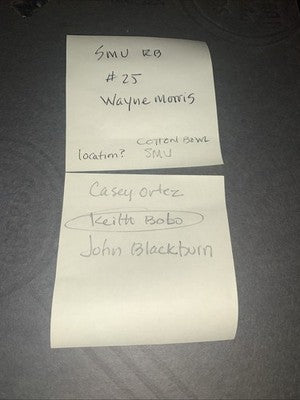 SMU RB
#25
Wayne Morris
COTTON BOWL
location? SMU
Casey Ortez
Keith Bobo
John Blackburn